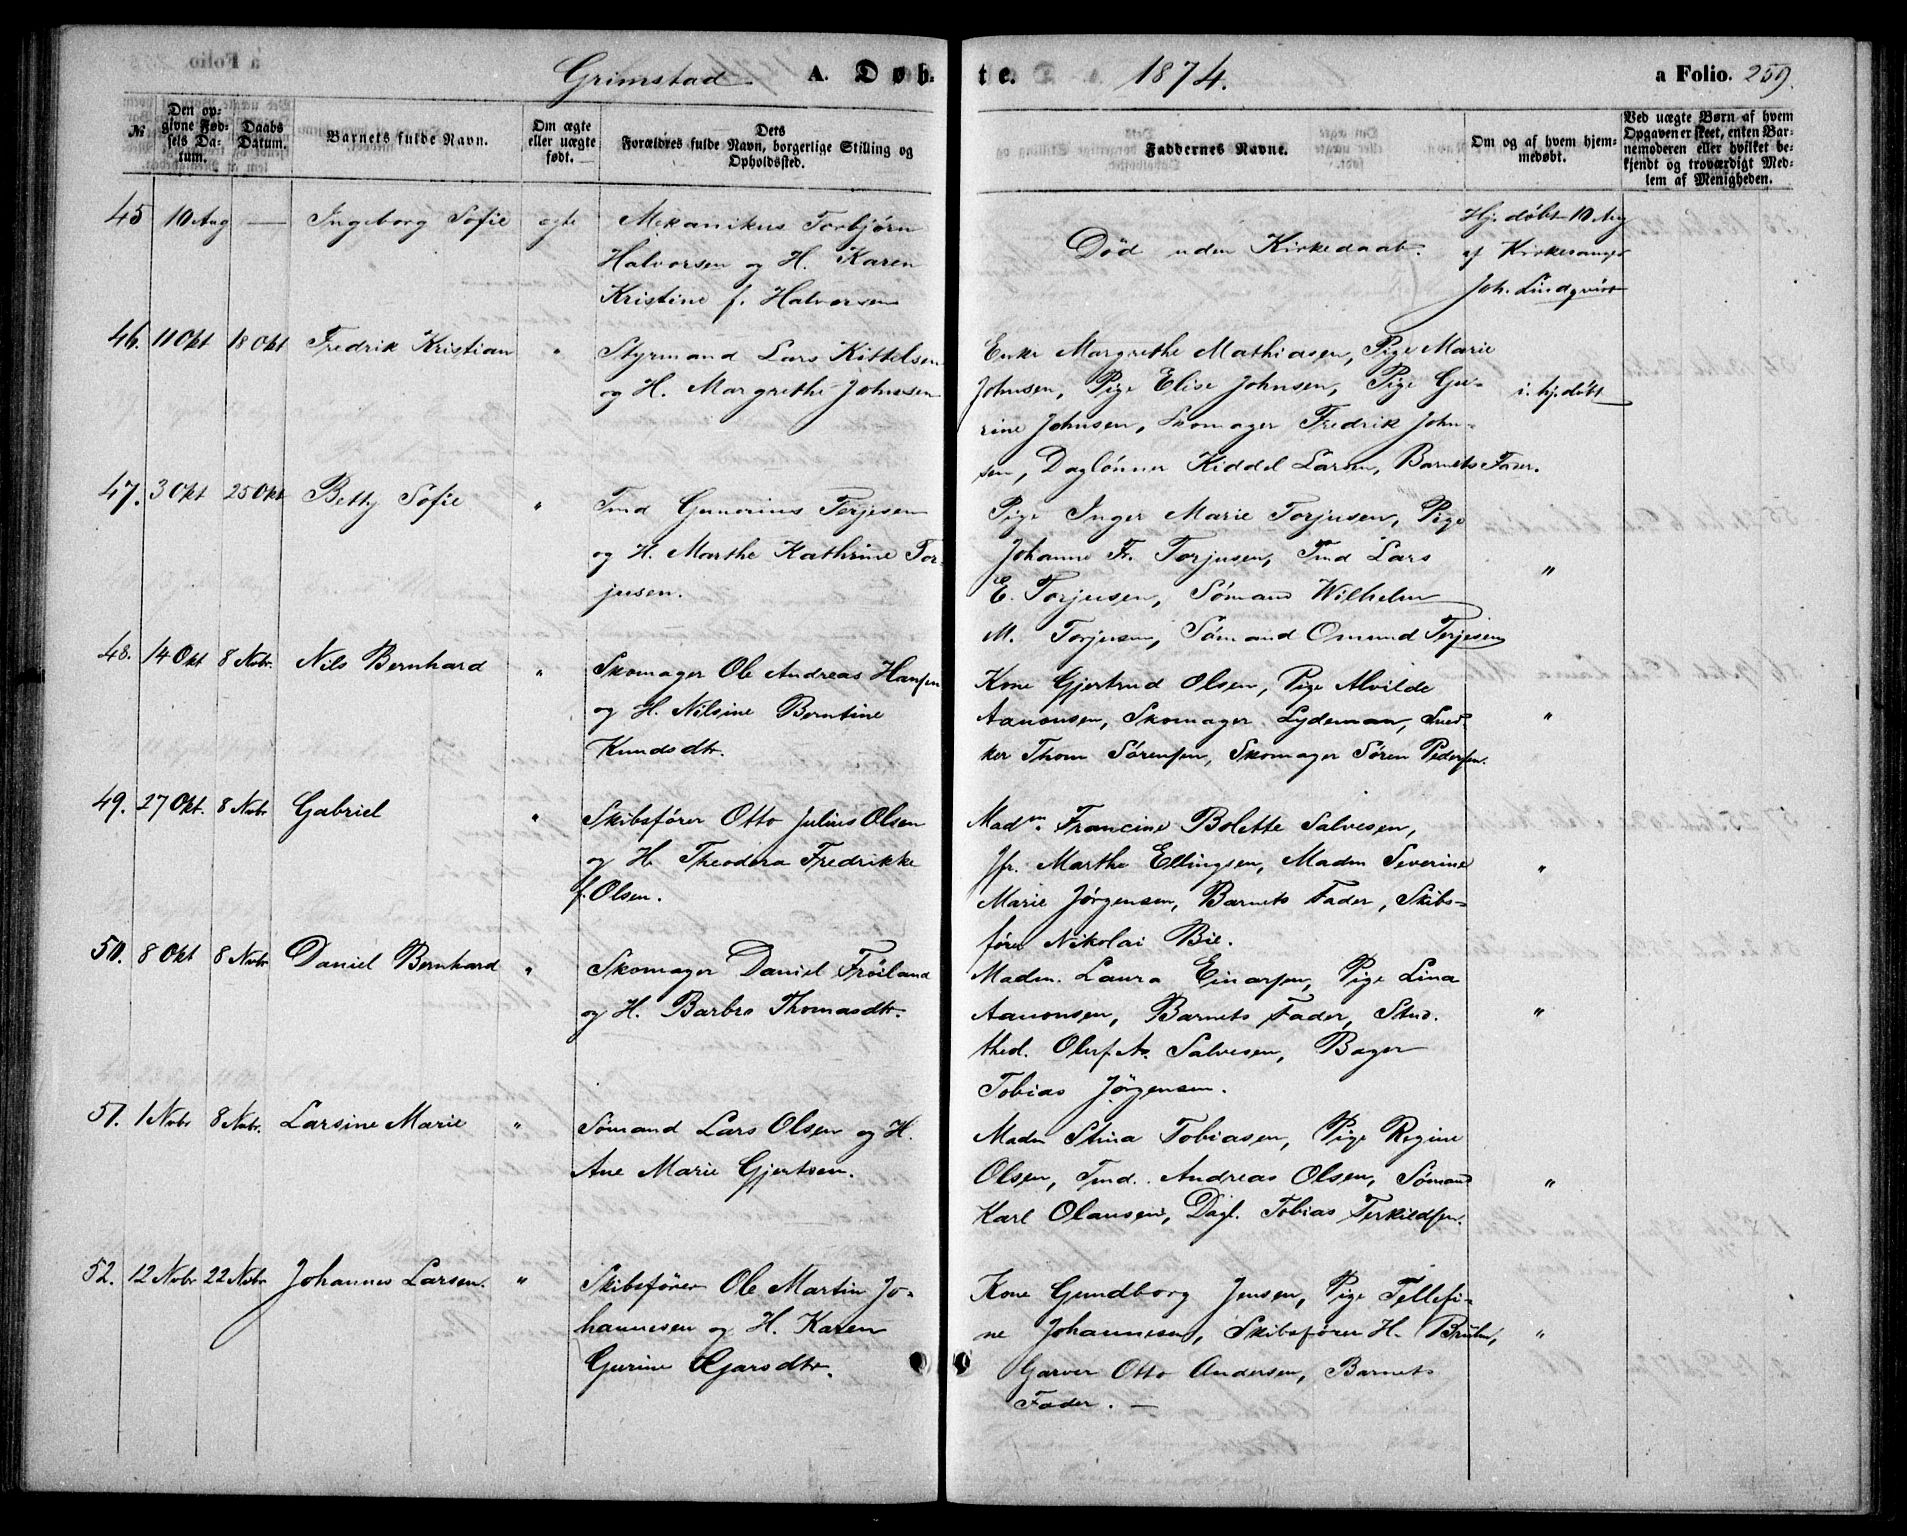 Grimstad A. Døb- te. 1874. a Folio. 259.
№
Den op-
givne Fød-
sels Da-
tum.
Daabs
Datum.
Barnets fulde Navn.
Om ægte
eller uægte
født.
Dets
Forældres fulde Navn, borgerlige Stilling og
Opholdssted.
Faddernes Navne.
Om og af hvem hjem-
medøbt.
Ved uægte Børn af hvem
Opgaven er skeet, enten Bar-
nemoderen eller hvilket be-
kjendt og troværdigt Med-
lem af Menigheden.
45 10 Aug — Ingeborg Sofie egte
Mekanikus Torbjørn
Halvorsen og H. Karen
Kristine f. Halvorsen
Død uden Kirkedaab.
Hj. døbt 10 Aug
af Kirkesanger
Joh. Lindqvist
46. 11 Okt 18 Okt Fredrik Kristian "
Styrmand Lars Kittelsen
og H. Margrethe Johnsen
Enke Margrethe Mathiasen, Pige Marie
Johnsen, Pige Elise Johnsen, Pige Gu-
rine Johnsen, Skomager Fredrik John-
sen, Daglønner Kiddel Larsen, Barnets Fader.
i. hj. døbt
47. 3 Okt 25 Okt Betty Sofie "
Tmd Gunerius Terjesen
og H. Marthe Kathrine Tor-
jusen.
Pige Inger Marie Torjusen, Pige
Johanne Fr. Torjusen, Tmd Lars
E. Torjusen, Sømand Wilhelm
M. Torjusen, Sømand Omund Terjesen
"
48. 14 Okt 8 Nvbr. Nils Bernhard "
Skomager Ole Andreas Hansen
og H. Nilsine Berntine
Knudsdtr.
Kone Gjertrud Olsen, Pige Alvilde
Aanonsen, Skomager Lydeman, Sned-
ker Thom Sørensen, Skomager Søren Pedersen.
"
49. 27 Okt. 8 Nvbr Gabriel "
Skibsfører Otto Julius Olsen
og H. Theodora Fredrikke
f. Olsen.
Madm. Francine Bolette Salvesen,
Jfr. Marthe Ellingsen, Madm Severine
Marie Jørgensen, Barnets Fader, Skibs-
fører Nikolai Bie.
"
50. 8 Okt 8 Nvbr Daniel Bernhard "
Skomager Daniel Frøiland
og H. Barbro Thomasdtr.
Madm. Laura Einarsen, Pige Lina
Aanonsen, Barnets Fader, Stud.
theol. Oluf A. Salvesen, Bager
Tobias Jørgensen.
"
51. 1 Nvbr 8 Nvbr. Larsine Marie "
Sømand Lars Olsen og H.
Ane Marie Gjertsen.
Madm Stina Tobiasen, Pige Regine
Olsen, Tmd. Andreas Olsen, Sømand
Karl Olausen, Dagl. Tobias Terkildsen.
"
52. 12 Nvbr 22 Nvbr Johannes Larsen. "
Skibsfører Ole Martin Jo-
hannesen og H. Karen
Gurine
Kone Gundborg Jensen, Pige Tellefi-
ne Johannesen, Skibsfører H. Bruhn,
Garver Otto Andersen, Barnets
Fader. —
"